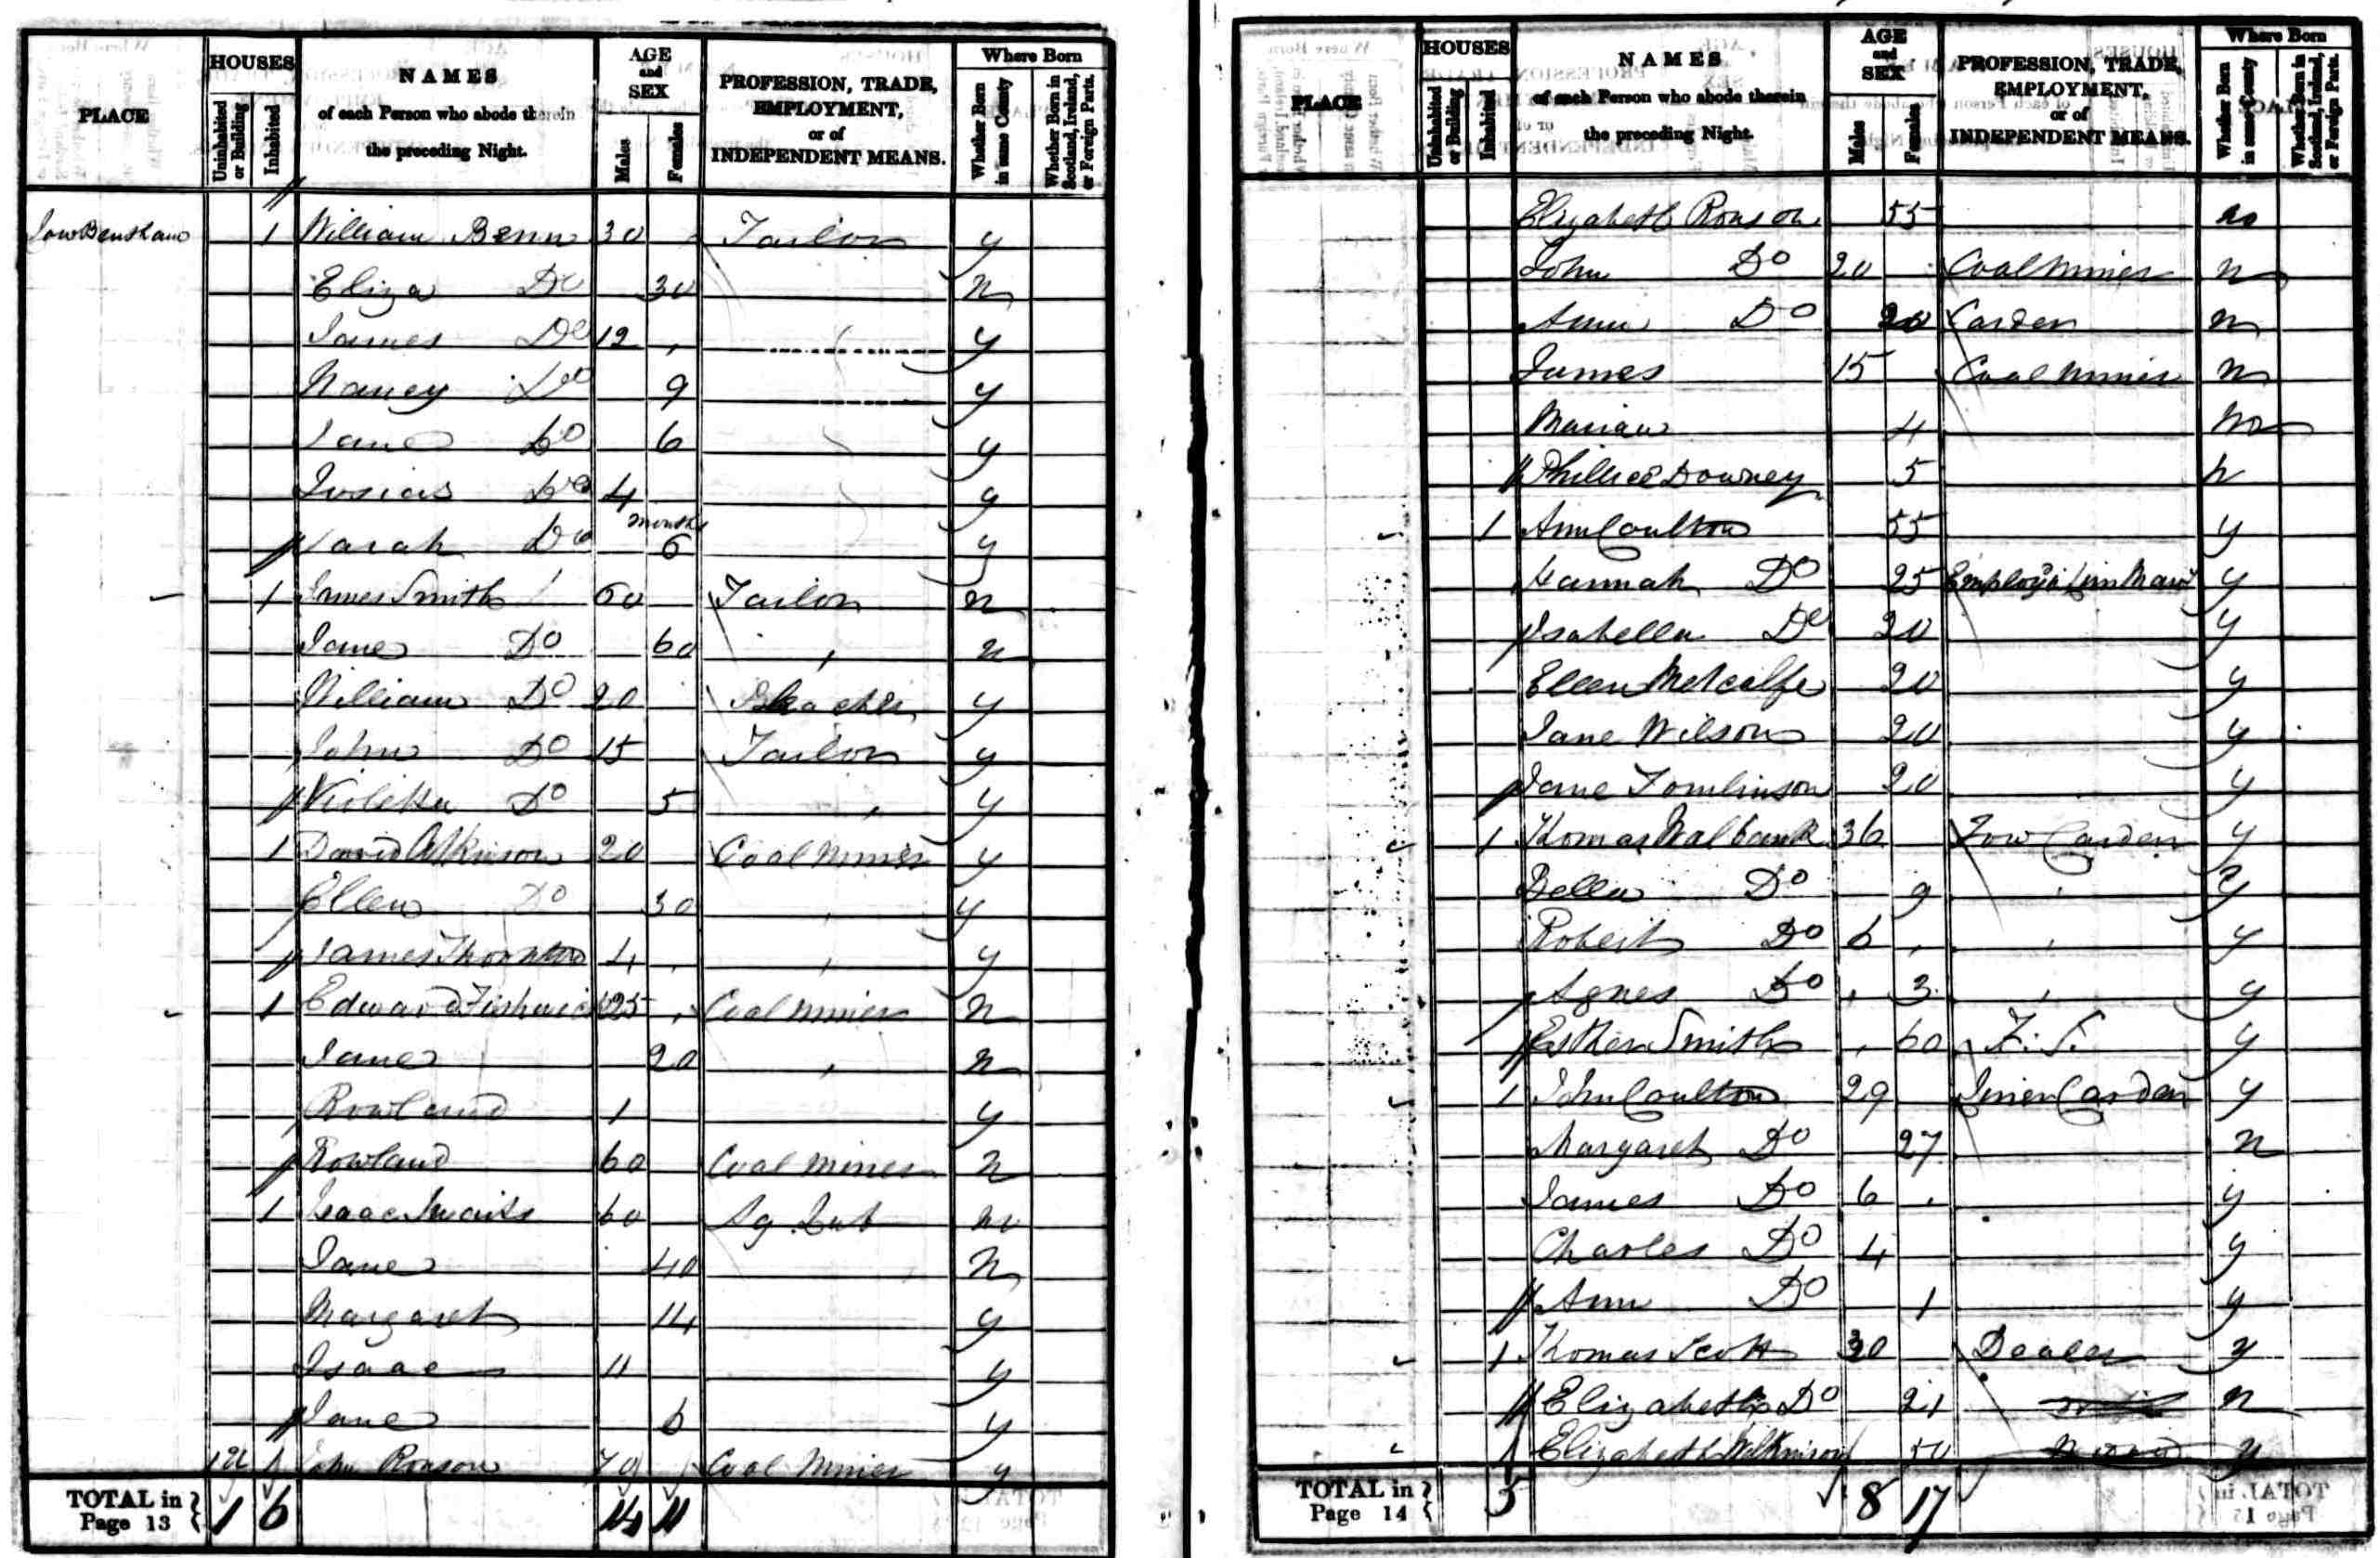 PLACE HOUSES Uninhabited or Building Inhabited NAMES of each Person who abode therein the preceding Night. AGE and SEX Males Females PROFESSION, TRADE, EMPLOYMENT, or of INDEPENDENT MEANS. Where Born Whether Born in same County Whether Born in Scotland, Ireland, or Foreign Parts.
Low Bentham 1 William Benn 30 Tailor y
Eliza Do 30 n
James Do 12 y
Nancy Do 9 y
Jane Do 6 y
Josias Do 4 y
Sarah Do months 6 y
1 James Smith 60 Tailor n
Jane Do 60 n
William Do 20 y
John Do 15 Tailor y
Do 5 y
1 David Atkinson 20 Coal Miner y
Ellen Do 30 y
James Thornton 4 y
1 Edward Fishwick 25 Coal miner n
Jane 20 n
Rowland 1 y
Rowland 60 Coal miner n
1 Isaac 60 Ag Lab no
Jane 40 n
Margaret 14 y
Isaac 11 y
Jane 6 y
1 John Ronson 70 Coal Miner y
TOTAL in Page 13 1 6 14 11
PLACE HOUSES Uninhabited or Building Inhabited NAMES of each Person who abode therein the preceding Night. AGE and SEX Males Females PROFESSION, TRADE, EMPLOYMENT, or of INDEPENDENT MEANS. Where Born Whether Born in same County Whether Born in Scotland, Ireland, or Foreign Parts.
Elizabeth Ronson 55 no
John Do 20 Coal miner n
Ann Do 20 Carder n
James 15 Coal miner n
4 no
Downey 5 n
1 Ann Coulton 55 y
Hannah Do 25 y
Isabella Do 20 y
Ellen Metcalfe 20 y
Jane Wilson 20 y
Jane Tomlinson 20 y
1 Thomas Walbank 36 Tow Carder y
Bella Do 9 y
Robert Do 6 y
Agnes Do 3 y
Esther Smith 60 F.S. y
1 John Coulton 29 Carder y
Margaret Do 27 n
James Do 6 y
Charles Do 4 y
Ann Do 1 y
1 Thomas Scott 30 Dealer y
Elizabeth Do 21 n
1 Elizabeth Wilkinson 50
TOTAL in Page 14 5 8 17